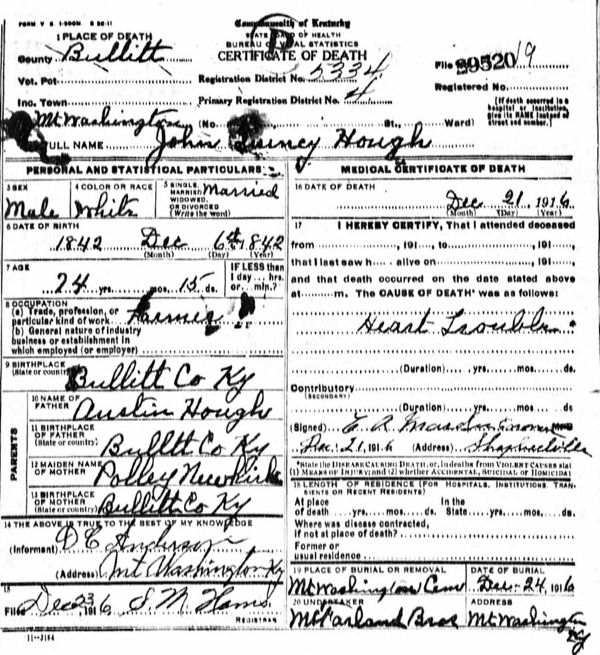 FORM V. S. 1-200M. 8 20-11
Commonwealth of Kentucky
STATE BOARD OF HEALTH
BUREAU OF VITAL STATISTICS
CERTIFICATE OF DEATH
1 PLACE OF DEATH
County Bullitt
Vot. Pct
Registration District No. 5334
File 29520 19
Inc. Town
Primary Registration District No. 4
Registered No.
Mt Washington (No. St., Ward)
[If death occurred in a hospital or institution, give its NAME instead of street and number.]
FULL NAME John Quincy Hough
PERSONAL AND STATISTICAL PARTICULARS
3 SEX Male
4 COLOR OR RACE White
5 SINGLE, MARRIED, WIDOWED, OR DIVORCED (Write the word) Married
6 DATE OF BIRTH
1842 Dec 6th 1842
(Month) (Day) (Year)
7 AGE
74 yrs. mos. 15 ds.
IF LESS than 1 day... hrs. or... min.?
8 OCCUPATION
(a) Trade, profession, or particular kind of work Farmer
(b) General nature of industry business or establishment in which employed (or employer)
9 BIRTHPLACE (State or country) Bullitt Co Ky
PARENTS
10 NAME OF FATHER Austin Hough
11 BIRTHPLACE OF FATHER (State or country) Bullitt Co Ky
12 MAIDEN NAME OF MOTHER Polley Newkirk
13 BIRTHPLACE OF MOTHER (State or country) Bullitt Co Ky
14 THE ABOVE IS TRUE TO THE BEST OF MY KNOWLEDGE
(Informant) D C Anderson
(Address) Mt Washington Ky
15
Filed Dec 23 1916 S W
REGISTRAR
11-3184
MEDICAL CERTIFICATE OF DEATH
16 DATE OF DEATH
Dec 21, 1916
(Month) (Day) (Year)
17 I HEREBY CERTIFY, That I attended deceased
from , 191 , to , 191
that I last saw h alive on , 191
and that death occurred on the date stated above
at m. The CAUSE OF DEATH* was as follows:
Heart Trouble
(Duration) yrs. mos. ds
Contributory
(SECONDARY)
(Duration) yrs. mos. ds
(Signed) Coroner
Dec. 21, 1916 (Address) Shepherdsville
*State the DISEASE CAUSING DEATH, or, in deaths from VIOLENT CAUSES stat
(1) MEANS OF INJURY; and (2) whether ACCIDENTAL, SUICIDAL or HOMICIDAL
18 LENGTH OF RESIDENCE (FOR HOSPITALS, INSTITUTIONS TRANSIENTS OR RECENT RESIDENTS)
At place of death yrs. mos. ds. In the State yrs. mos. ds
Where was disease contracted, if not at place of death?
Former or usual residence
19 PLACE OF BURIAL OR REMOVAL
Mt Washington Cem
DATE OF BURIAL
Dec 24, 1916
20 UNDERTAKER
McFarland Bros
ADDRESS
Mt Washington Ky